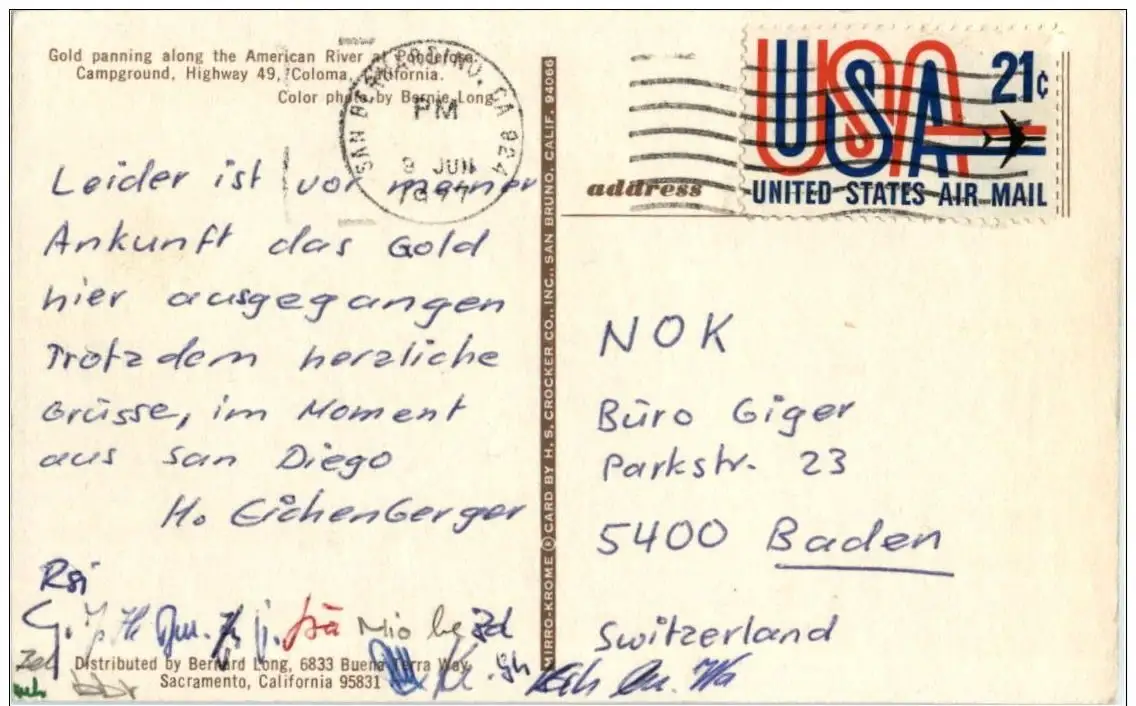 Gold panning along the American River at Ponderosa
Campground, Highway 49, Coloma, California.
Color photo by Bernie Long
SAN BERNARDINO, CA 924
PM
9 JUN
1977
Leider ist vor meiner
Ankunft das Gold
hier ausgegangen
Trotzdem herzliche
Grüsse, im Moment
aus San Diego
H. Eichenberger
Rsi
Mio
Distributed by Bernard Long, 6833 Buena Terra Way
Sacramento, California 95831
MIRRO-KROME ® CARD BY H. S. CROCKER CO., INC., SAN BRUNO, CALIF. 94066
USA
21c
UNITED STATES AIR MAIL
address
NOK
Büro Giger
Parkstr. 23
5400 Baden
Switzerland